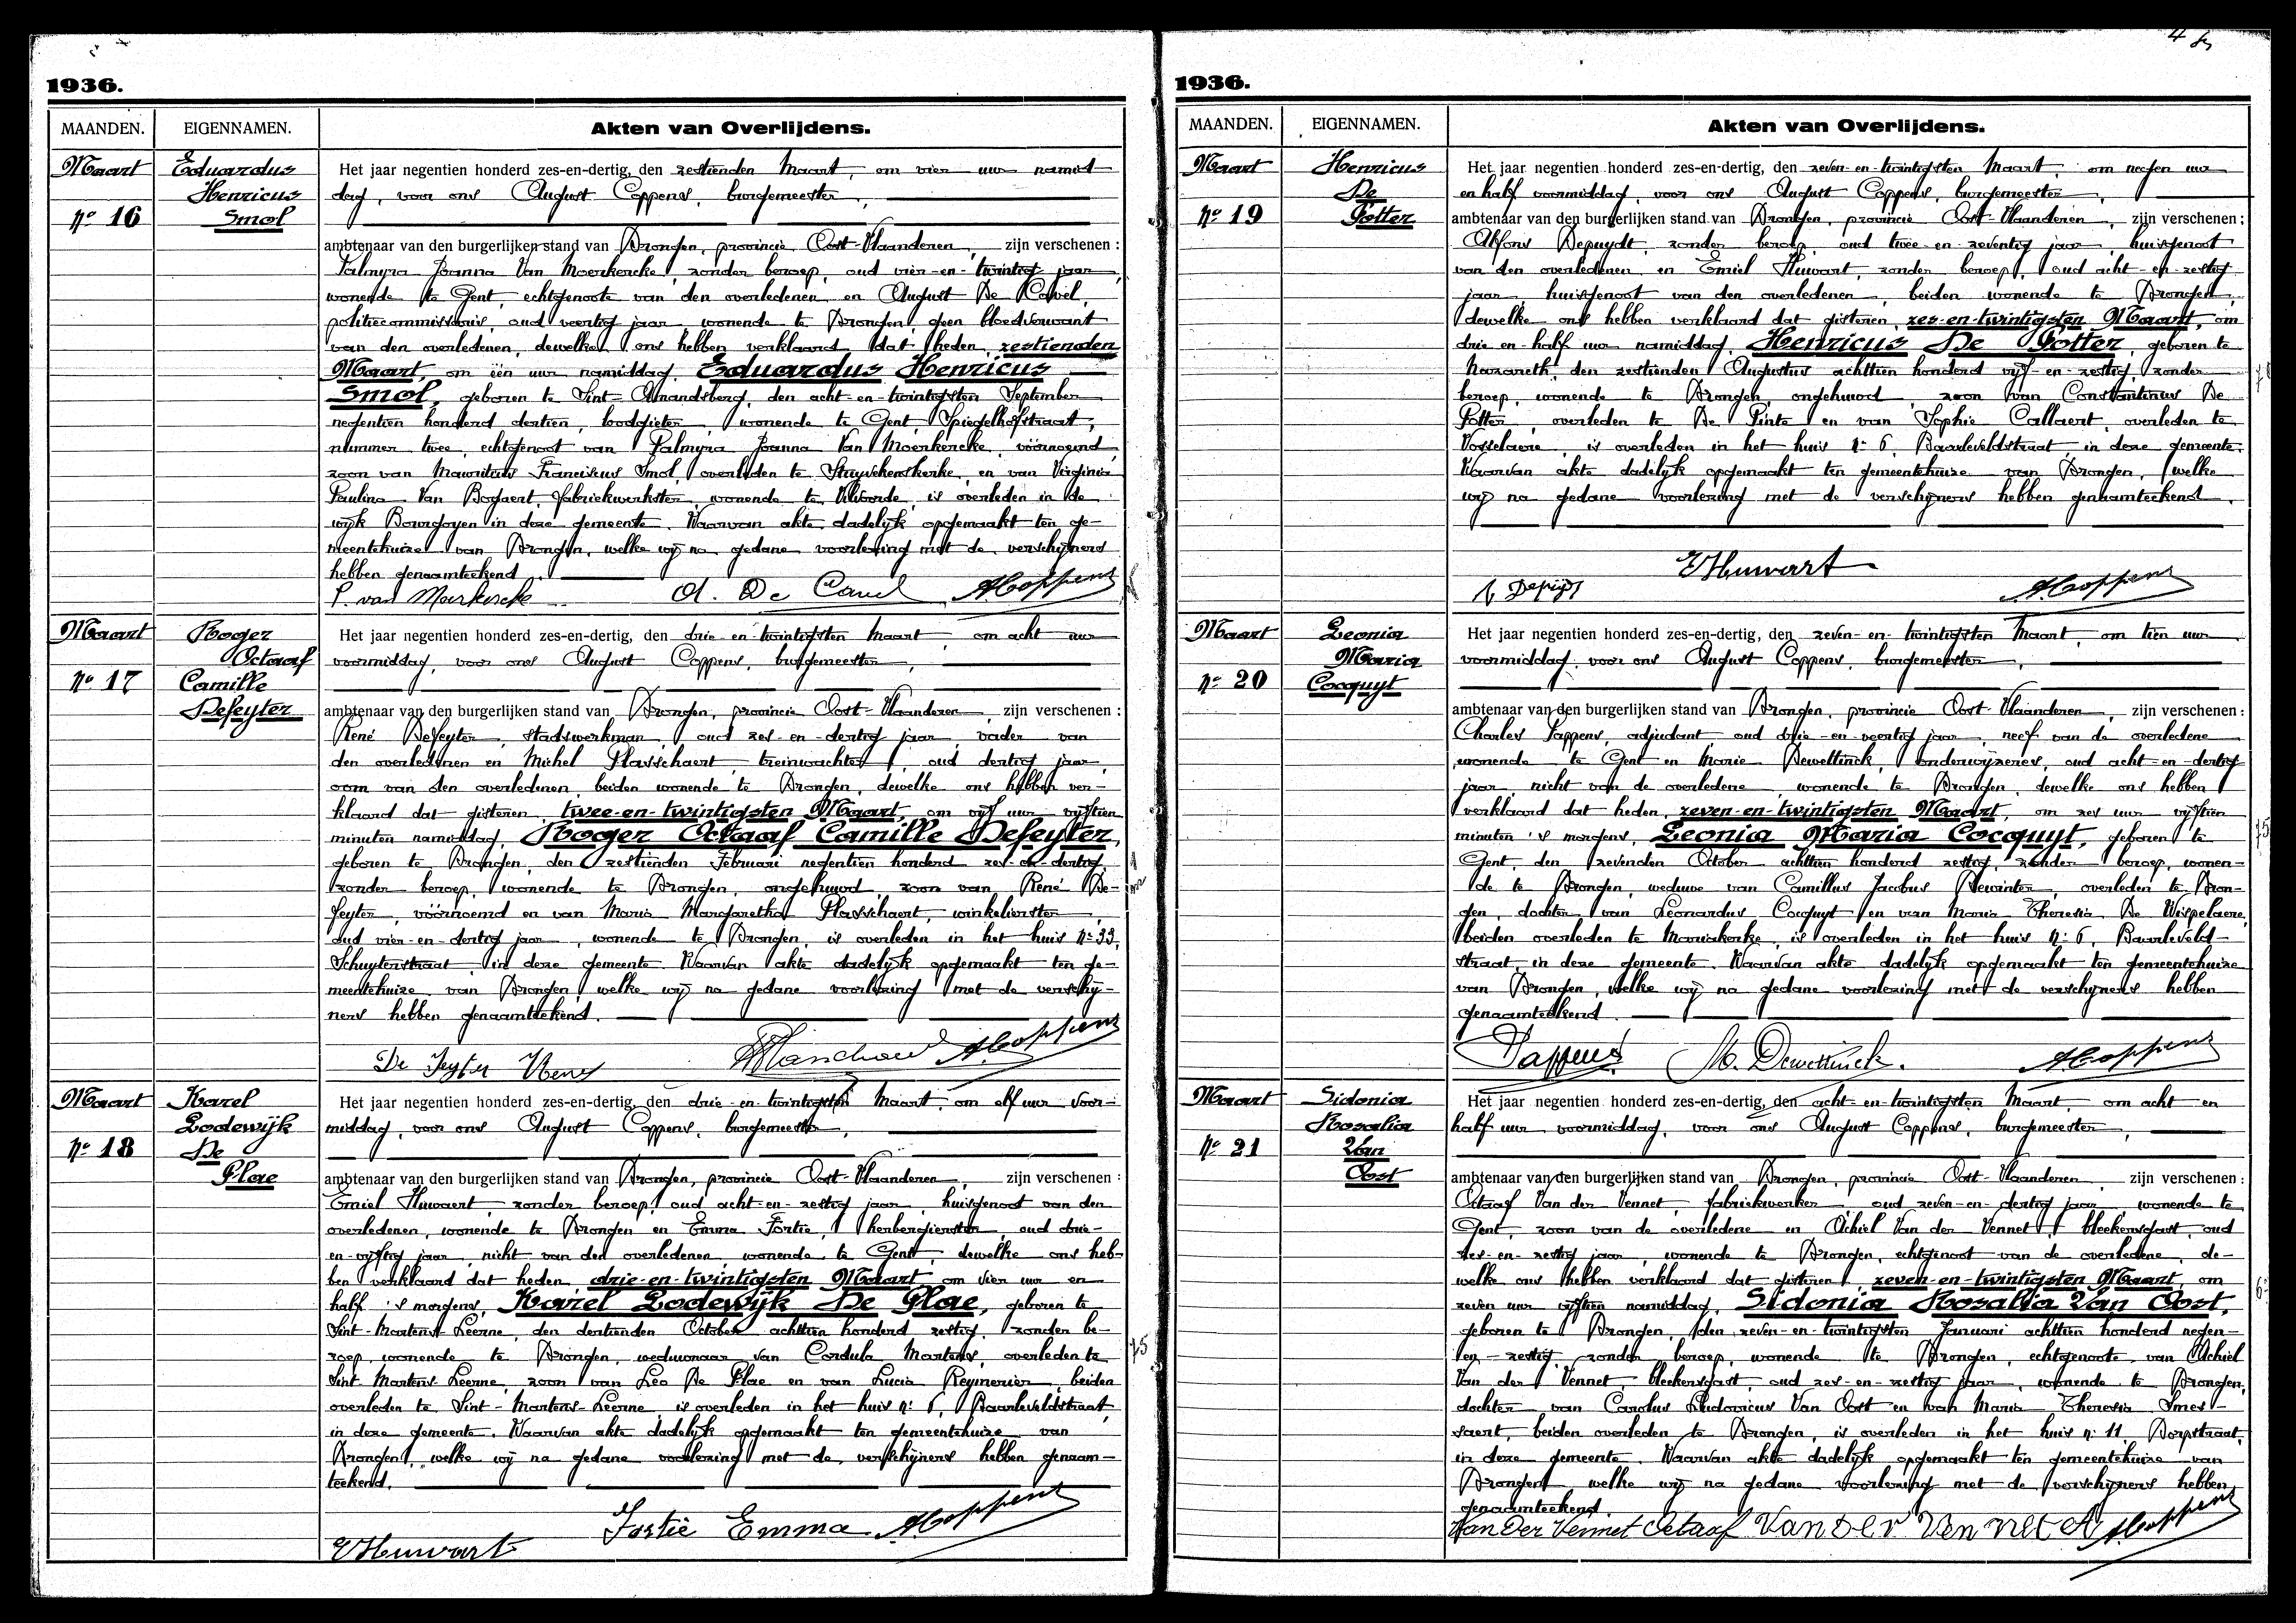 1936.
MAANDEN. EIGENNAMEN. Akten van Overlijdens.
Maart
Nº 16
Eduardus
Henricus
Smol
Het jaar negentien honderd zes-en-dertig, den zestienden Maart, om vier uur namid
dag, voor ons August Coppens, burgemeester,
ambtenaar van den burgerlijken stand van Drongen, provincie Oost-Vlaanderen, zijn verschenen :
Palmyra Joanna Van Moerkercke, zonder beroep, oud vier-en-twintig jaar,
wonende te Gent, echtgenoote van den overledenen en August De Cavel,
politiecommissaris, oud veertig jaar, wonende te Drongen, geen bloedverwant
van den overledenen, dewelke ons hebben verklaard dat heden, zestienden
Maart, om één uur namiddag, Eduardus Henricus
Smol, geboren te Sint-Amandsberg, den acht-en-twintigsten September
negentien honderd dertien, loodgieter, wonende te Gent, Spiegelhofstraat,
nummer twee, echtgenoot van Palmyra Joanna Van Moerkercke, vóórnoemd,
zoon van Mauritius Franciscus Smol, overleden te Stuyvekenskerke, en van Virginia
Paulina Van Bogaert, fabriekwerkster, wonende te Vilvoorde, is overleden in de
wijk Bourgoyen in deze gemeente. Waarvan akte dadelijk opgemaakt ten ge-
meentehuize van Drongen, welke wij na gedane voorlezing met de verschijners
hebben genaamteekend.
P. van Moerkercke A. De Cavel A. Coppens
Maart
Nº 17
Roger
Octaaf
Camille
Defeyter
Het jaar negentien honderd zes-en-dertig, den drie-en-twintigsten Maart, om acht uur
voormiddag, voor ons August Coppens, burgemeester,
ambtenaar van den burgerlijken stand van Drongen, provincie Oost-Vlaanderen, zijn verschenen :
René Defeyter, stadswerkman, oud zes-en-dertig jaar, vader van
den overledenen en Michel Plasschaert, treinwachter, oud dertig jaar,
oom van den overledenen, beiden wonende te Drongen, dewelke ons hebben ver-
klaard dat gisteren, twee-en-twintigsten Maart, om vijf uur vijftien
minuten namiddag, Roger Octaaf Camille Defeyter,
geboren te Drongen, den zestienden Februari negentien honderd zes-en-dertig,
zonder beroep, wonende te Drongen, ongehuwd, zoon van René De-
feyter, vóórnoemd en van Maria Margaretha Plasschaert, winkelierster,
oud vier-en-dertig jaar, wonende te Drongen, is overleden in het huis Nº 33,
Schuyterstraat, in deze gemeente. Waarvan akte dadelijk opgemaakt ten ge-
meentehuize van Drongen, welke wij na gedane voorlezing met de verschij-
ners hebben genaamteekend.
De Feyter Rene A. Coppens
Maart
Nº 18
Karel
Lodewijk
De
Plae
Het jaar negentien honderd zes-en-dertig, den drie-en-twintigsten Maart, om elf uur voor-
middag, voor ons August Coppens, burgemeester,
ambtenaar van den burgerlijken stand van Drongen, provincie Oost-Vlaanderen, zijn verschenen :
Emiel Huwaert, zonder beroep, oud acht-en-zestig jaar, huisgenoot van den
overledenen, wonende te Drongen en Emma Fortie, herbergierster, oud drie-
en-vijftig jaar, nicht van den overledenen wonende te Gent, dewelke ons heb-
ben verklaard dat heden, drie-en-twintigsten Maart, om vier uur en
half 's morgens, Karel Lodewijk De Plae, geboren te
Sint-Martens-Leerne, den dertienden October achttien honderd zestig, zonder be-
roep, wonende te Drongen, weduwnaar van Cordula Martens, overleden te
Sint Martens-Leerne, zoon van Leo De Plae en van Lucia Reymenier, beiden
overleden te Sint-Martens-Leerne, is overleden in het huis nº 6, Baarleveldstraat,
in deze gemeente. Waarvan akte dadelijk opgemaakt ten gemeentehuize van
Drongen, welke wij na gedane voorlezing met de verschijners hebben genaam-
teekend.
75
E Huwart Fortie Emma A. Coppens
1936.
MAANDEN. EIGENNAMEN. Akten van Overlijdens.
Maart
Nº 19
Henricus
De
Potter
Het jaar negentien honderd zes-en-dertig, den zeven-en-twintigsten Maart, om negen uur
en half voormiddag, voor ons August Coppens, burgemeester,
ambtenaar van den burgerlijken stand van Drongen, provincie Oost-Vlaanderen, zijn verschenen :
Alfons Depuydt, zonder beroep, oud twee-en-zeventig jaar, huisgenoot
van den overledenen en Emiel Huwart, zonder beroep, oud acht-en-zestig
jaar, huisgenoot van den overledenen, beiden wonende te Drongen,
dewelke ons hebben verklaard dat gisteren, zes-en-twintigsten Maart, om
drie en half uur namiddag, Henricus De Potter, geboren te
Nazareth, den zestienden Augustus achttien honderd vijf-en-zestig, zonder
beroep, wonende te Drongen, ongehuwd, zoon van Constantinus De
Potter, overleden te De Pinte en van Sophie Callaert, overleden te
Vosselaere, is overleden in het huis Nº 6, Baarleveldstraat, in deze gemeente.
Waarvan akte dadelijk opgemaakt ten gemeentehuize van Drongen, welke
wij na gedane voorlezing met de verschijners hebben genaamteekend.
E Huwart
A Depuydt A. Coppens
Maart
Nº 20
Leonia
Maria
Cocquyt
Het jaar negentien honderd zes-en-dertig, den zeven-en-twintigsten Maart, om tien uur
voormiddag, voor ons August Coppens, burgemeester,
ambtenaar van den burgerlijken stand van Drongen, provincie Oost-Vlaanderen, zijn verschenen :
Charles Pappens, adjudant oud drie-en-veertig jaar, neef van de overledene
wonende te Gent en Marie Dewettinck, onderwijzeres, oud acht-en-dertig
jaar, nicht van de overledene wonende te Drongen, dewelke ons hebben
verklaard dat heden, zeven-en-twintigsten Maart, om zes uur vijftien
minuten 's morgens, Leonia Maria Cocquyt, geboren te
Gent, den zevenden October achttien honderd zestig, zonder beroep, wonen-
de te Drongen, weduwe van Camillus Jacobus Dewinter, overleden te Dron-
gen, dochter van Leonardus Cocquyt en van Maria Theresia De Wispelaere,
beiden overleden te Mariakerke, is overleden in het huis Nº 6, Baarleveld-
straat, in deze gemeente. Waarvan akte dadelijk opgemaakt ten gemeentehuize
van Drongen, welke wij na gedane voorlezing met de verschijners hebben
genaamteekend.
75
Pappens M. Dewettinck. A. Coppens
Maart
Nº 21
Sidonia
Rosalia
Van
Oost
Het jaar negentien honderd zes-en-dertig, den acht-en-twintigsten Maart, om acht en
half uur voormiddag, voor ons August Coppens, burgemeester,
ambtenaar van den burgerlijken stand van Drongen, provincie Oost-Vlaanderen, zijn verschenen :
Octaaf Van der Vennet, fabriekwerker, oud zeven-en-dertig jaar, wonende te
Gent, zoon van de overledene en Achiel Van der Vennet, bleekersgast, oud
zes-en-zestig jaar, wonende te Drongen, echtgenoot van de overledene, de-
welke ons hebben verklaard dat gisteren, zeven-en-twintigsten Maart, om
zeven uur vijftien namiddag, Sidonia Rosalia Van Oost,
geboren te Drongen, den zeven-en-twintigsten Januari achttien honderd negen-
en-zestig, zonder beroep, wonende te Drongen, echtgenoote van Achiel
Van der Vennet, bleekersgast, oud zes-en-zestig jaar, wonende te Drongen,
dochter van Carolus Ludovicus Van Oost en van Maria Theresia Smes-
saert, beiden overleden te Drongen, is overleden in het huis nº 11, Dorpstraat,
in deze gemeente. Waarvan akte dadelijk opgemaakt ten gemeentehuize van
Drongen, welke wij na gedane voorlezing met de verschijners hebben
genaamteekend.
Van Der Vennet Octaaf Van Der Vennet A A. Coppens